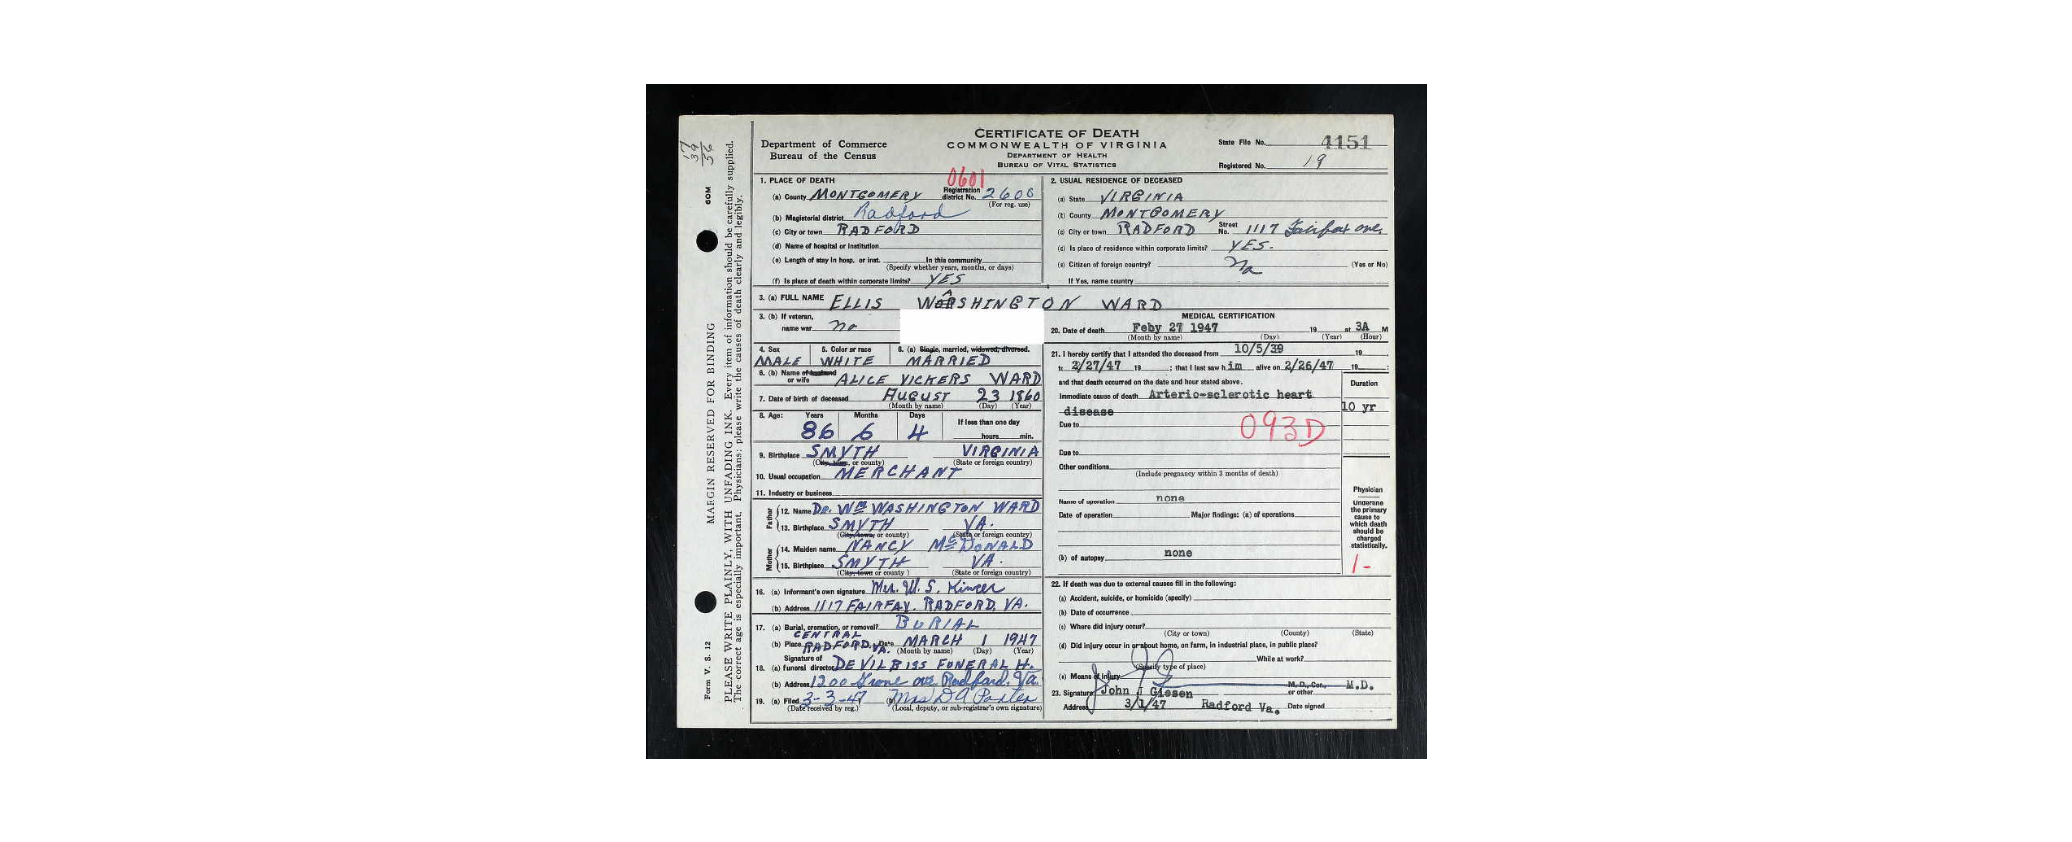 CERTIFICATE OF DEATH
COMMONWEALTH OF VIRGINIA
DEPARTMENT OF HEALTH
BUREAU OF VITAL STATISTICS
Department of Commerce
Bureau of the Census
State File No. 4151
Registered No. 19
MARGIN RESERVED FOR BINDING
PLEASE WRITE PLAINLY, WITH UNFADING INK. Every item of information should be carefully supplied.
The correct age is especially important. Physicians: please write the causes of death clearly and legibly.
Form V. S. 12
60M
1. PLACE OF DEATH
0601
(a) County MONTGOMERY Registration district No. 2600
(For reg. use)
(b) Magisterial district Radford
(c) City or town RADFORD
(d) Name of hospital or institution
(e) Length of stay in hosp. or inst. In this community
(Specify whether years, months, or days)
(f) Is place of death within corporate limits? YES
2. USUAL RESIDENCE OF DECEASED
(a) State VIRGINIA
County MONTGOMERY
(c) City or town RADFORD Street No. 1117 Fairfax ave,
(d) Is place of residence within corporate limits? YES.
(e) Citizen of foreign country? no (Yes or No)
If Yes, name country
3. (a) FULL NAME ELLIS WASHINGTON WARD
3. (b) If veteran,
name war no
4. Sex 5. Color or race 6. (a) Single, married, widowed, divorced.
MALE WHITE MARRIED
6. (b) Name of husband
or wife ALICE VICKERS WARD
7. Date of birth of deceased AUGUST 23 1860
(Month by name) (Day) (Year)
8. Age: Years Months Days If less than one day
86 6 4 hours min.
9. Birthplace SMYTH VIRGINIA
(City, town, or county) (State or foreign country)
10. Usual occupation MERCHANT
11. Industry or business
Father
12. Name DR. WM WASHINGTON WARD
13. Birthplace SMYTH VA.
(City, town, or county) (State or foreign country)
Mother
14. Maiden name NANCY McDONALD
15. Birthplace SMYTH VA.
(City, town or county) (State or foreign country)
16. (a) Informant's own signature Mrs. W. S. Kincer
(b) Address 1117 FAIRFAX. RADFORD, VA.
17. (a) Burial, cremation, or removal? BURIAL
CENTRAL
(b) Place RADFORD, VA. Date MARCH 1 1947
(Month by name) (Day) (Year)
Signature of
18. (a) funeral director DEVILBISS FUNERAL H.
(b) Address 1200 Grove ave Radford, Va.
19. (a) Filed 3-3-47 Mrs D A Porter
(Date received by reg.) (Local, deputy, or sub-registrar's own signature)
MEDICAL CERTIFICATION
20. Date of death Feby 27 1947 19 at 3A M
(Month by name) (Day) (Year) (Hour)
21. I hereby certify that I attended the deceased from 10/5/39 19
to 2/27/47 19 ; that I last saw h im alive on 2/26/47 19 ;
and that death occurred on the date and hour stated above.
Duration
Immediate cause of death Arterio-sclerotic heart
disease 10 yr
Due to 093D
Due to
Other conditions
(Include pregnancy within 3 months of death)
Name of operation none
Date of operation Major findings: (a) of operations
(b) of autopsy none
Physician
Underline
the primary
cause to
which death
should be
charged
statistically.
1-
22. If death was due to external causes fill in the following:
(a) Accident, suicide, or homicide (specify)
(b) Date of occurrence
(c) Where did injury occur?
(City or town) (County) (State)
(d) Did injury occur in or about home, on farm, in industrial place, in public place?
While at work?
(Specify type of place)
(e) Means of injury
23. Signature John J Giesen M. D., Cor., or other M.D.
Address 3/1/47 Radford Va. Date signed